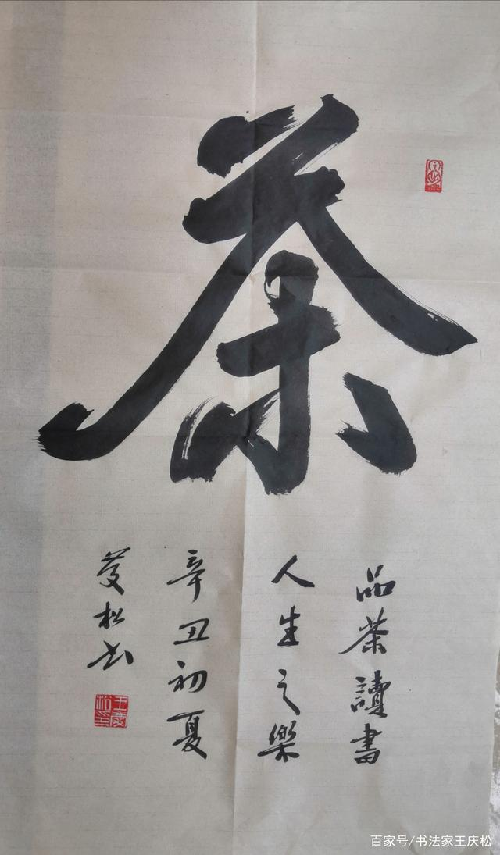 茶
品茶讀書
人生之樂
辛丑初夏
慶松书
百家号/书法家王庆松